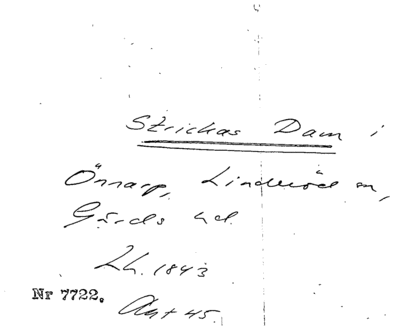 Strickas Dam i
Önnarp, Linderöd sn,
Gärds hd.
Lh. 1843
Nr 7722.
Akt 45.